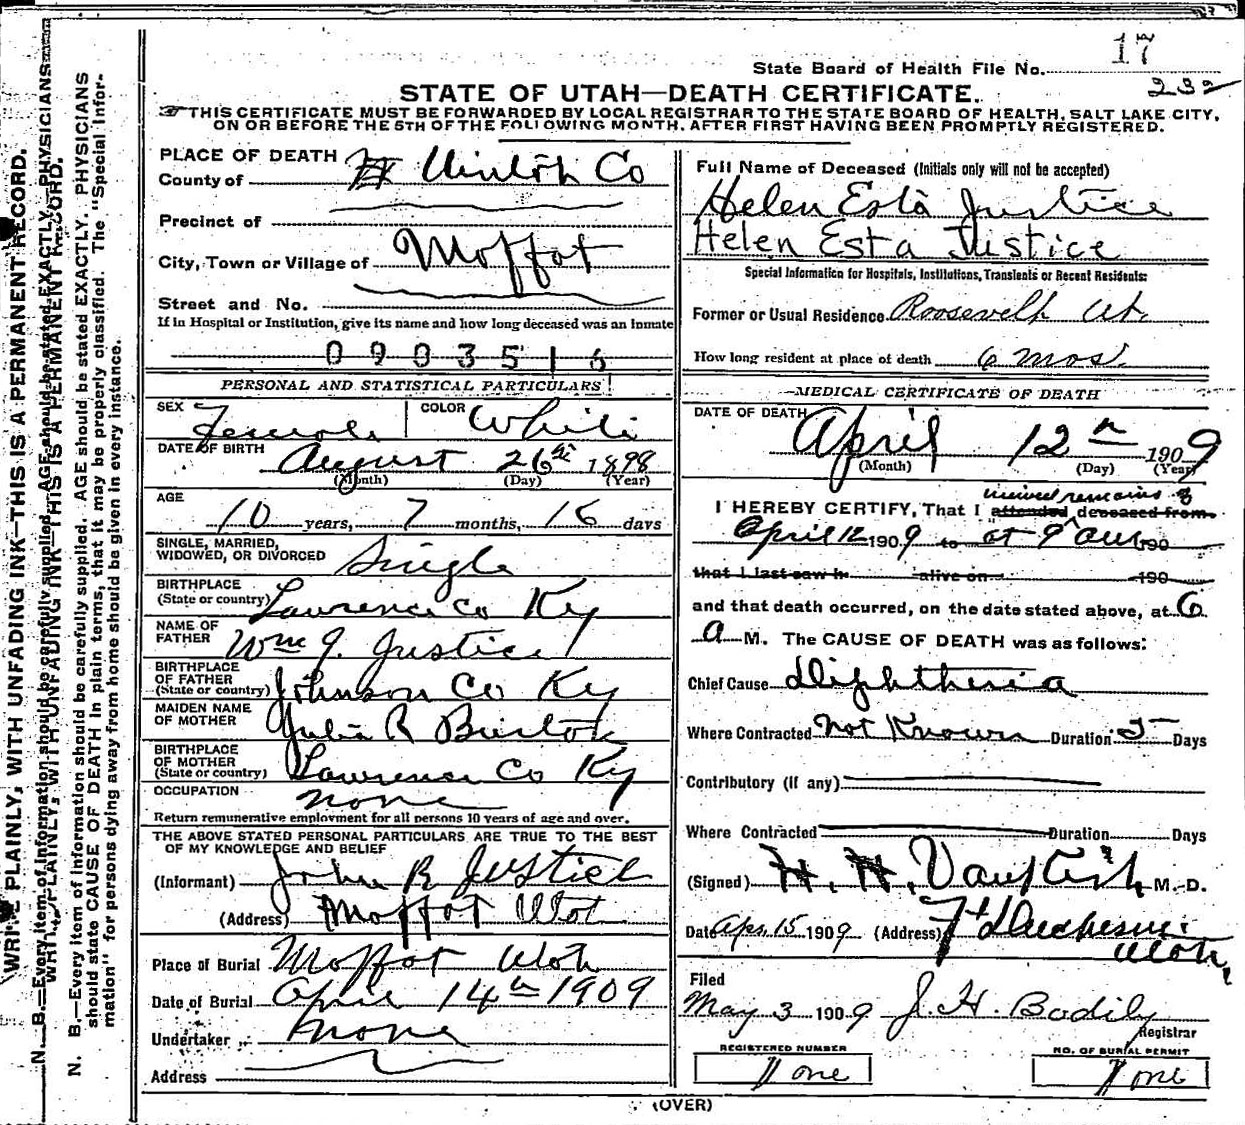 17
State Board of Health File No.
232
STATE OF UTAH—DEATH CERTIFICATE.
THIS CERTIFICATE MUST BE FORWARDED BY LOCAL REGISTRAR TO THE STATE BOARD OF HEALTH, SALT LAKE CITY,
ON OR BEFORE THE 5TH OF THE FOLLOWING MONTH, AFTER FIRST HAVING BEEN PROMPTLY REGISTERED.
PLACE OF DEATH
County of Uintah Co
Precinct of
City, Town or Village of Moffat
Street and No.
If in Hospital or Institution, give its name and how long deceased was an Inmate
0903516
PERSONAL AND STATISTICAL PARTICULARS
SEX Female COLOR White
DATE OF BIRTH August 26th 1898
(Month) (Day) (Year)
AGE
10 years, 7 months, 16 days
SINGLE, MARRIED,
WIDOWED, OR DIVORCED Single
BIRTHPLACE
(State or country) Lawrence Co Ky
NAME OF
FATHER Wm J. Justice
BIRTHPLACE
OF FATHER
(State or country) Johnson Co Ky
MAIDEN NAME
OF MOTHER Julia R
BIRTHPLACE
OF MOTHER
(State or country) Lawrence Co Ky
OCCUPATION none
Return remunerative employment for all persons 10 years of age and over.
THE ABOVE STATED PERSONAL PARTICULARS ARE TRUE TO THE BEST
OF MY KNOWLEDGE AND BELIEF
(Informant) John R Justice
(Address) Moffat Utah
Place of Burial Moffat Utah
Date of Burial April 14th 1909
Undertaker none
Address
Full Name of Deceased (Initials only will not be accepted)
Helen Esta Justice
Helen Esta Justice
Special Information for Hospitals, Institutions, Transients or Recent Residents:
Former or Usual Residence Roosevelt Ut.
How long resident at place of death 6 mos.
MEDICAL CERTIFICATE OF DEATH
DATE OF DEATH
April 12th 1909
(Month) (Day) (Year)
viewed remains of
I HEREBY CERTIFY, That I attended deceased from
April 12 1909 to at 9 am 190
that I last saw h alive on 190
and that death occurred, on the date stated above, at 6
a M. The CAUSE OF DEATH was as follows:
Chief Cause Diphtheria
Where Contracted Not Known Duration 5 Days
Contributory (if any)
Where Contracted Duration Days
(Signed) H. H. M.D.
Date Apr. 15 1909 (Address) Ft Duchesne
Utah,
Filed
May 3 1909 J. H. Bodily
Registrar
REGISTERED NUMBER
NO. OF BURIAL PERMIT
None
None
(OVER)
WRITE PLAINLY, WITH UNFADING INK—THIS IS A PERMANENT RECORD.
N. B.—Every item of information should be carefully supplied. AGE should be stated EXACTLY. PHYSICIANS
WRITE PLAINLY, WITH UNFADING INK—THIS IS A PERMANENT RECORD.
N. B.—Every item of information should be carefully supplied. AGE should be stated EXACTLY. PHYSICIANS
should state CAUSE OF DEATH in plain terms, that it may be properly classified. The "Special Infor-
mation" for persons dying away from home should be given in every instance.